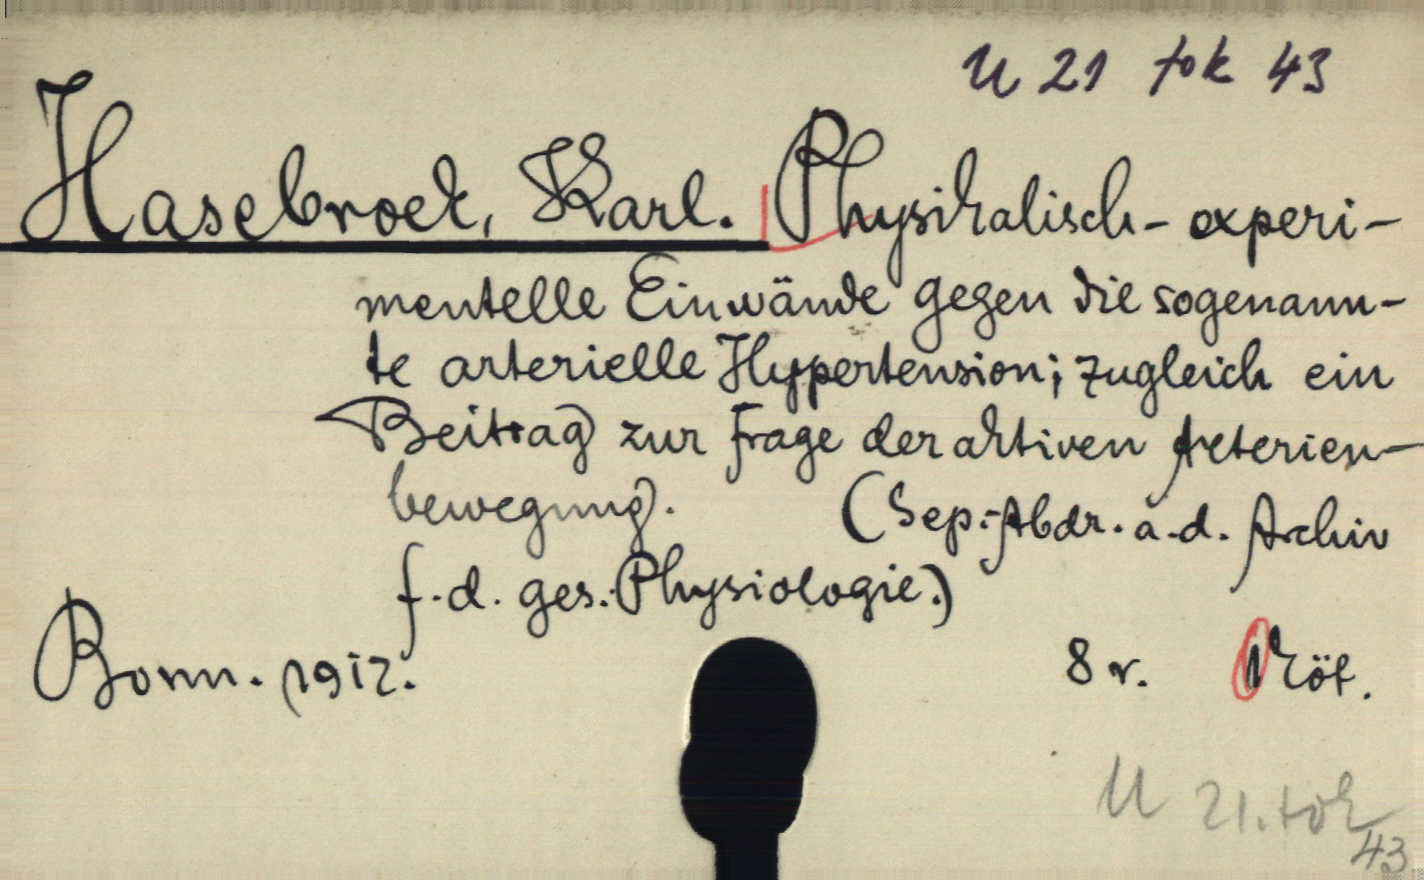 U 21 tok 43
Hasebroek, Karl. Physikalisch-experi-
mentelle Einwände gegen die sogenann-
te arterielle Hypertension; zugleich ein
Beitrag zur Frage der aktiven Arterien-
bewegung. (Sep.-Abdr. a. d. Archiv
f. d. ges. Physiologie.)
Bonn. 1912. 8r. 1 köt.
U 21. tok
43